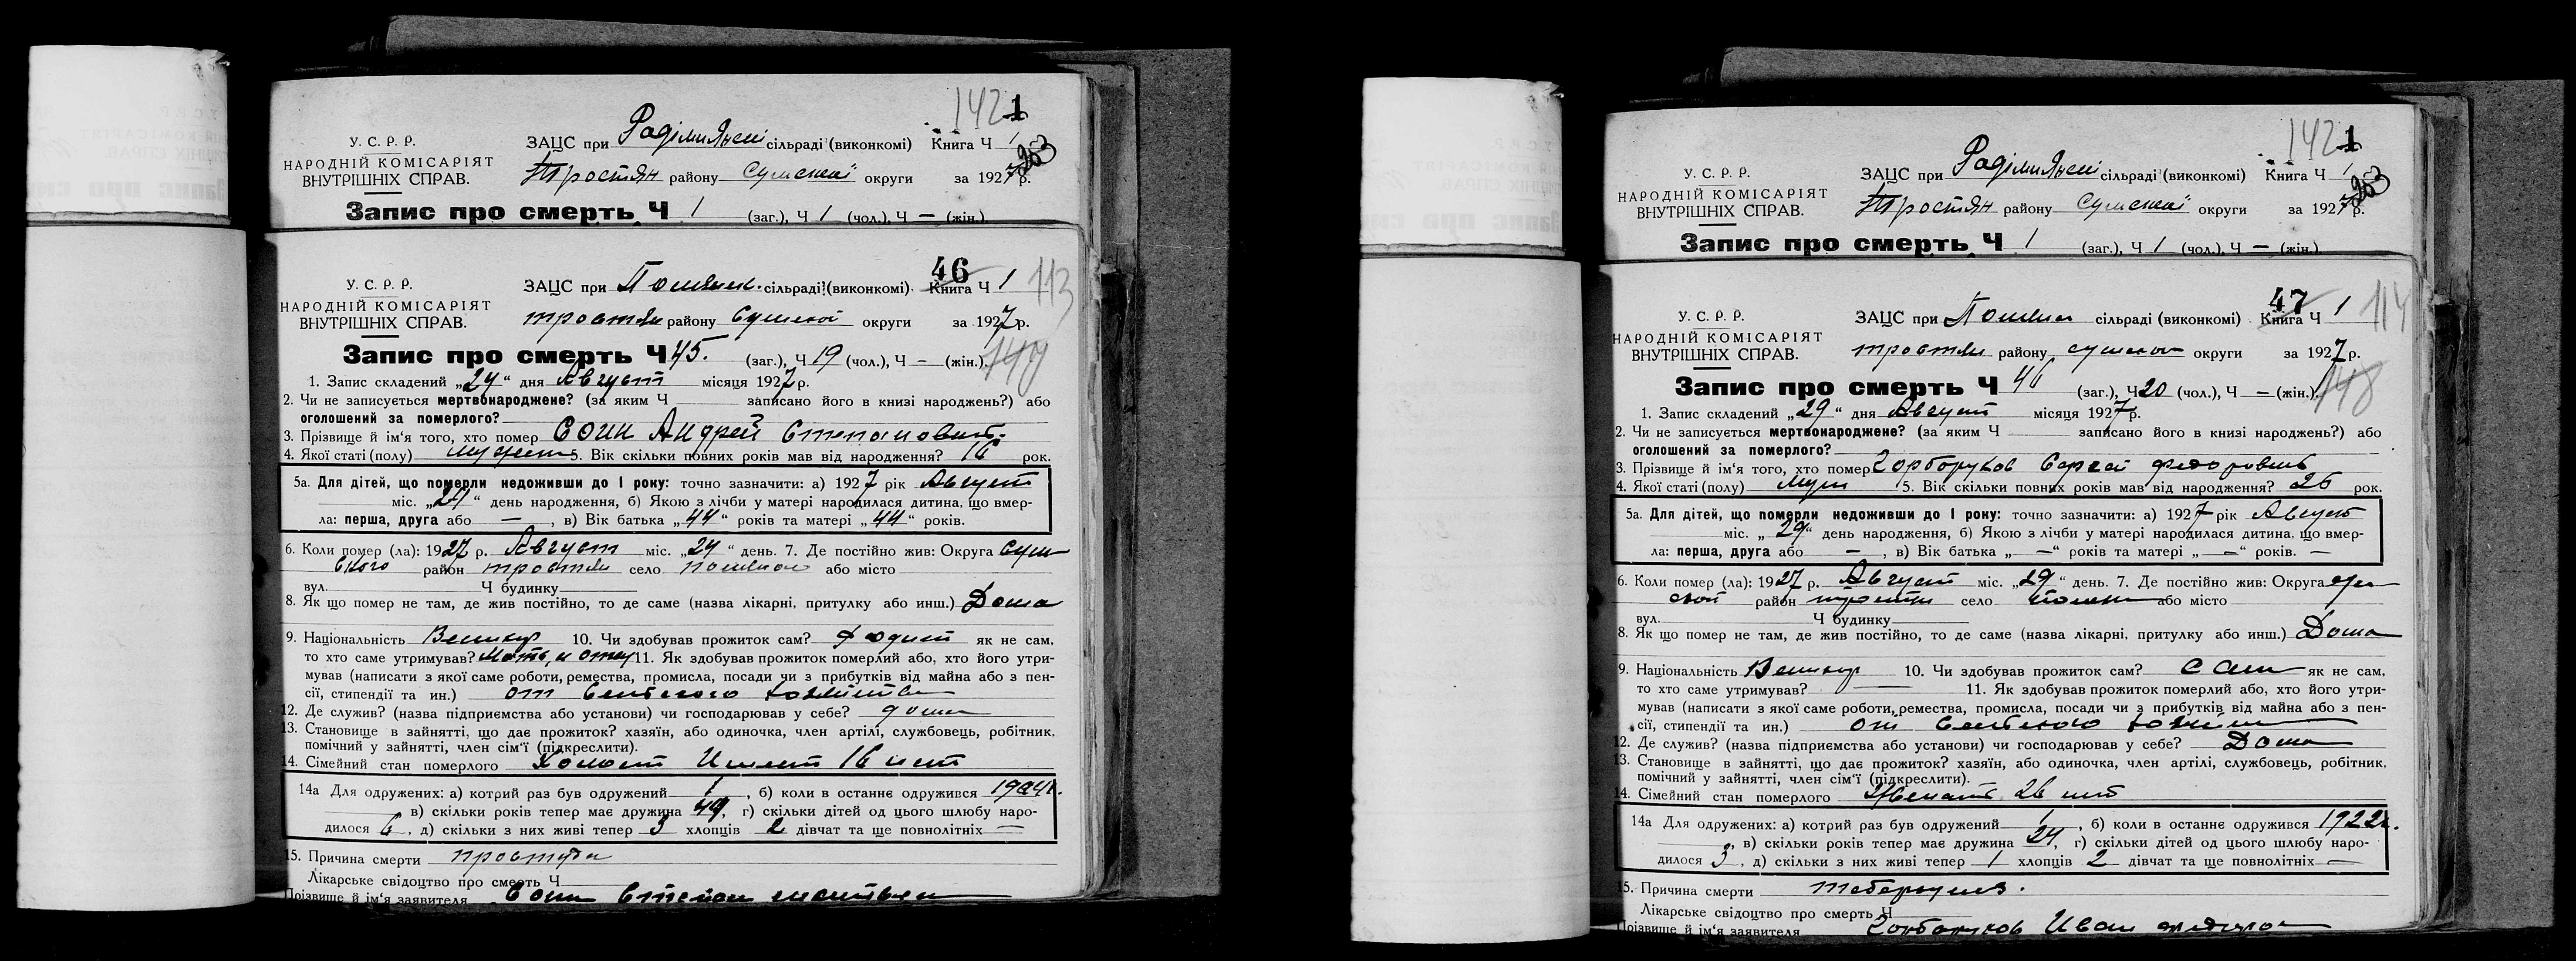 142 1
У. С. Р. Р.
НАРОДНІЙ КОМІСАРІЯТ
ВНУТРІШНІХ СПРАВ.
ЗАЦС при сільраді (виконкомі) Книга Ч 1
Тростян району Сумської округи за 1927 р.
203
Запис про смерть Ч 1 (заг.), Ч 1 (чол.), Ч — (жін.)
46
113
У. С. Р. Р.
НАРОДНІЙ КОМІСАРІЯТ
ВНУТРІШНІХ СПРАВ.
ЗАЦС при сільраді (виконкомі) Книга Ч 1
тростян району Сумской округи за 1927 р.
Запис про смерть Ч 45. (заг.), Ч 19 (чол.), Ч — (жін.)
147
1. Запис складений „24“ дня Август місяця 1927 р.
2. Чи не записується мертвонароджене? (за яким Ч записано його в книзі народжень?) або
оголошений за померлого?
3. Прізвище й ім‘я того, хто помер Андрей Степанович.
4. Якої статі (полу) 5. Вік скільки повних років мав від народження? 16 рок.
5а. Для дітей, що померли недоживши до 1 року: точно зазначити: а) 1927 рік Август
міс. „24“ день народження, б) Якою з лічби у матері народилася дитина, що вмер-
ла: перша, друга або — , в) Вік батька „44“ років та матері „44“ років.
6. Коли помер (ла): 1927 р. Август міс. „24“ день. 7. Де постійно жив: Округа Сум
ского район тростян село або місто
вул. Ч будинку
8. Як що помер не там, де жив постійно, то де саме (назва лікарні, притулку або инш.) Дома
9. Національність Великор 10. Чи здобував прожиток сам? як не сам,
то хто саме утримував? Мать и отец 11. Як здобував прожиток померлий або, хто його утри-
мував (написати з якої саме роботи, ремества, промисла, посади чи з прибутків від майна або з пен-
сії, стипендії та ин.) от Сельского
12. Де служив? (назва підприємства або установи) чи господарював у себе? дома
13. Становище в зайнятті, що дає прожиток? хазяїн, або одиночка, член артілі, службовець, робітник,
помічний у зайнятті, член сім‘ї (підкреслити).
14. Сімейний стан померлого Холост 16 лет
14а Для одружених: а) котрий раз був одружений 1, б) коли в останнє одружився
в) скільки років тепер має дружина 44, г) скільки дітей од цього шлюбу наро-
дилося 6, д) скільки з них живі тепер 3 хлопців 2 дівчат та ще повнолітніх —
15. Причина смерти простуда
Лікарське свідоцтво про смерть Ч
Прізвище й ім‘я заявителя Степан
142 1
У. С. Р. Р.
НАРОДНІЙ КОМІСАРІЯТ
ВНУТРІШНІХ СПРАВ.
ЗАЦС при сільраді (виконкомі) Книга Ч 1
Тростян району Сумської округи за 1927 р.
203
Запис про смерть Ч 1 (заг.), Ч 1 (чол.), Ч — (жін.)
47
114
У. С. Р. Р.
НАРОДНІЙ КОМІСАРІЯТ
ВНУТРІШНІХ СПРАВ.
ЗАЦС при сільраді (виконкомі) Книга Ч 1
тростян району сумской округи за 1927 р.
Запис про смерть Ч 46 (заг.), Ч 20 (чол.), Ч — (жін.)
148
1. Запис складений „29“ дня Август місяця 1927 р.
2. Чи не записується мертвонароджене? (за яким Ч записано його в книзі народжень?) або
оголошений за померлого?
3. Прізвище й ім‘я того, хто помер Горборуков Сергей Федорович
4. Якої статі (полу) Муж 5. Вік скільки повних років мав від народження? 26 рок.
5а. Для дітей, що померли недоживши до 1 року: точно зазначити: а) 1927 рік Август
міс. „29“ день народження, б) Якою з лічби у матері народилася дитина, що вмер-
ла: перша, друга або — , в) Вік батька „—“ років та матері „—“ років. —
6. Коли помер (ла): 1927 р. Август міс. „29“ день. 7. Де постійно жив: Округа
район тростян село або місто
вул. Ч будинку
8. Як що помер не там, де жив постійно, то де саме (назва лікарні, притулку або инш.) Дома
9. Національність Великор 10. Чи здобував прожиток сам? Сам як не сам,
то хто саме утримував? — 11. Як здобував прожиток померлий або, хто його утри-
мував (написати з якої саме роботи, ремества, промисла, посади чи з прибутків від майна або з пен-
сії, стипендії та ин.) от Сельского
12. Де служив? (назва підприємства або установи) чи господарював у себе? Дома
13. Становище в зайнятті, що дає прожиток? хазяїн, або одиночка, член артілі, службовець, робітник,
помічний у зайнятті, член сім‘ї (підкреслити).
14. Сімейний стан померлого Женат 26 лет
14а Для одружених: а) котрий раз був одружений 1, б) коли в останнє одружився 1922г.
в) скільки років тепер має дружина 24, г) скільки дітей од цього шлюбу наро-
дилося 3, д) скільки з них живі тепер 1 хлопців 2 дівчат та ще повнолітніх —
15. Причина смерти
Лікарське свідоцтво про смерть Ч
Прізвище й ім‘я заявителя Горборуков Иван